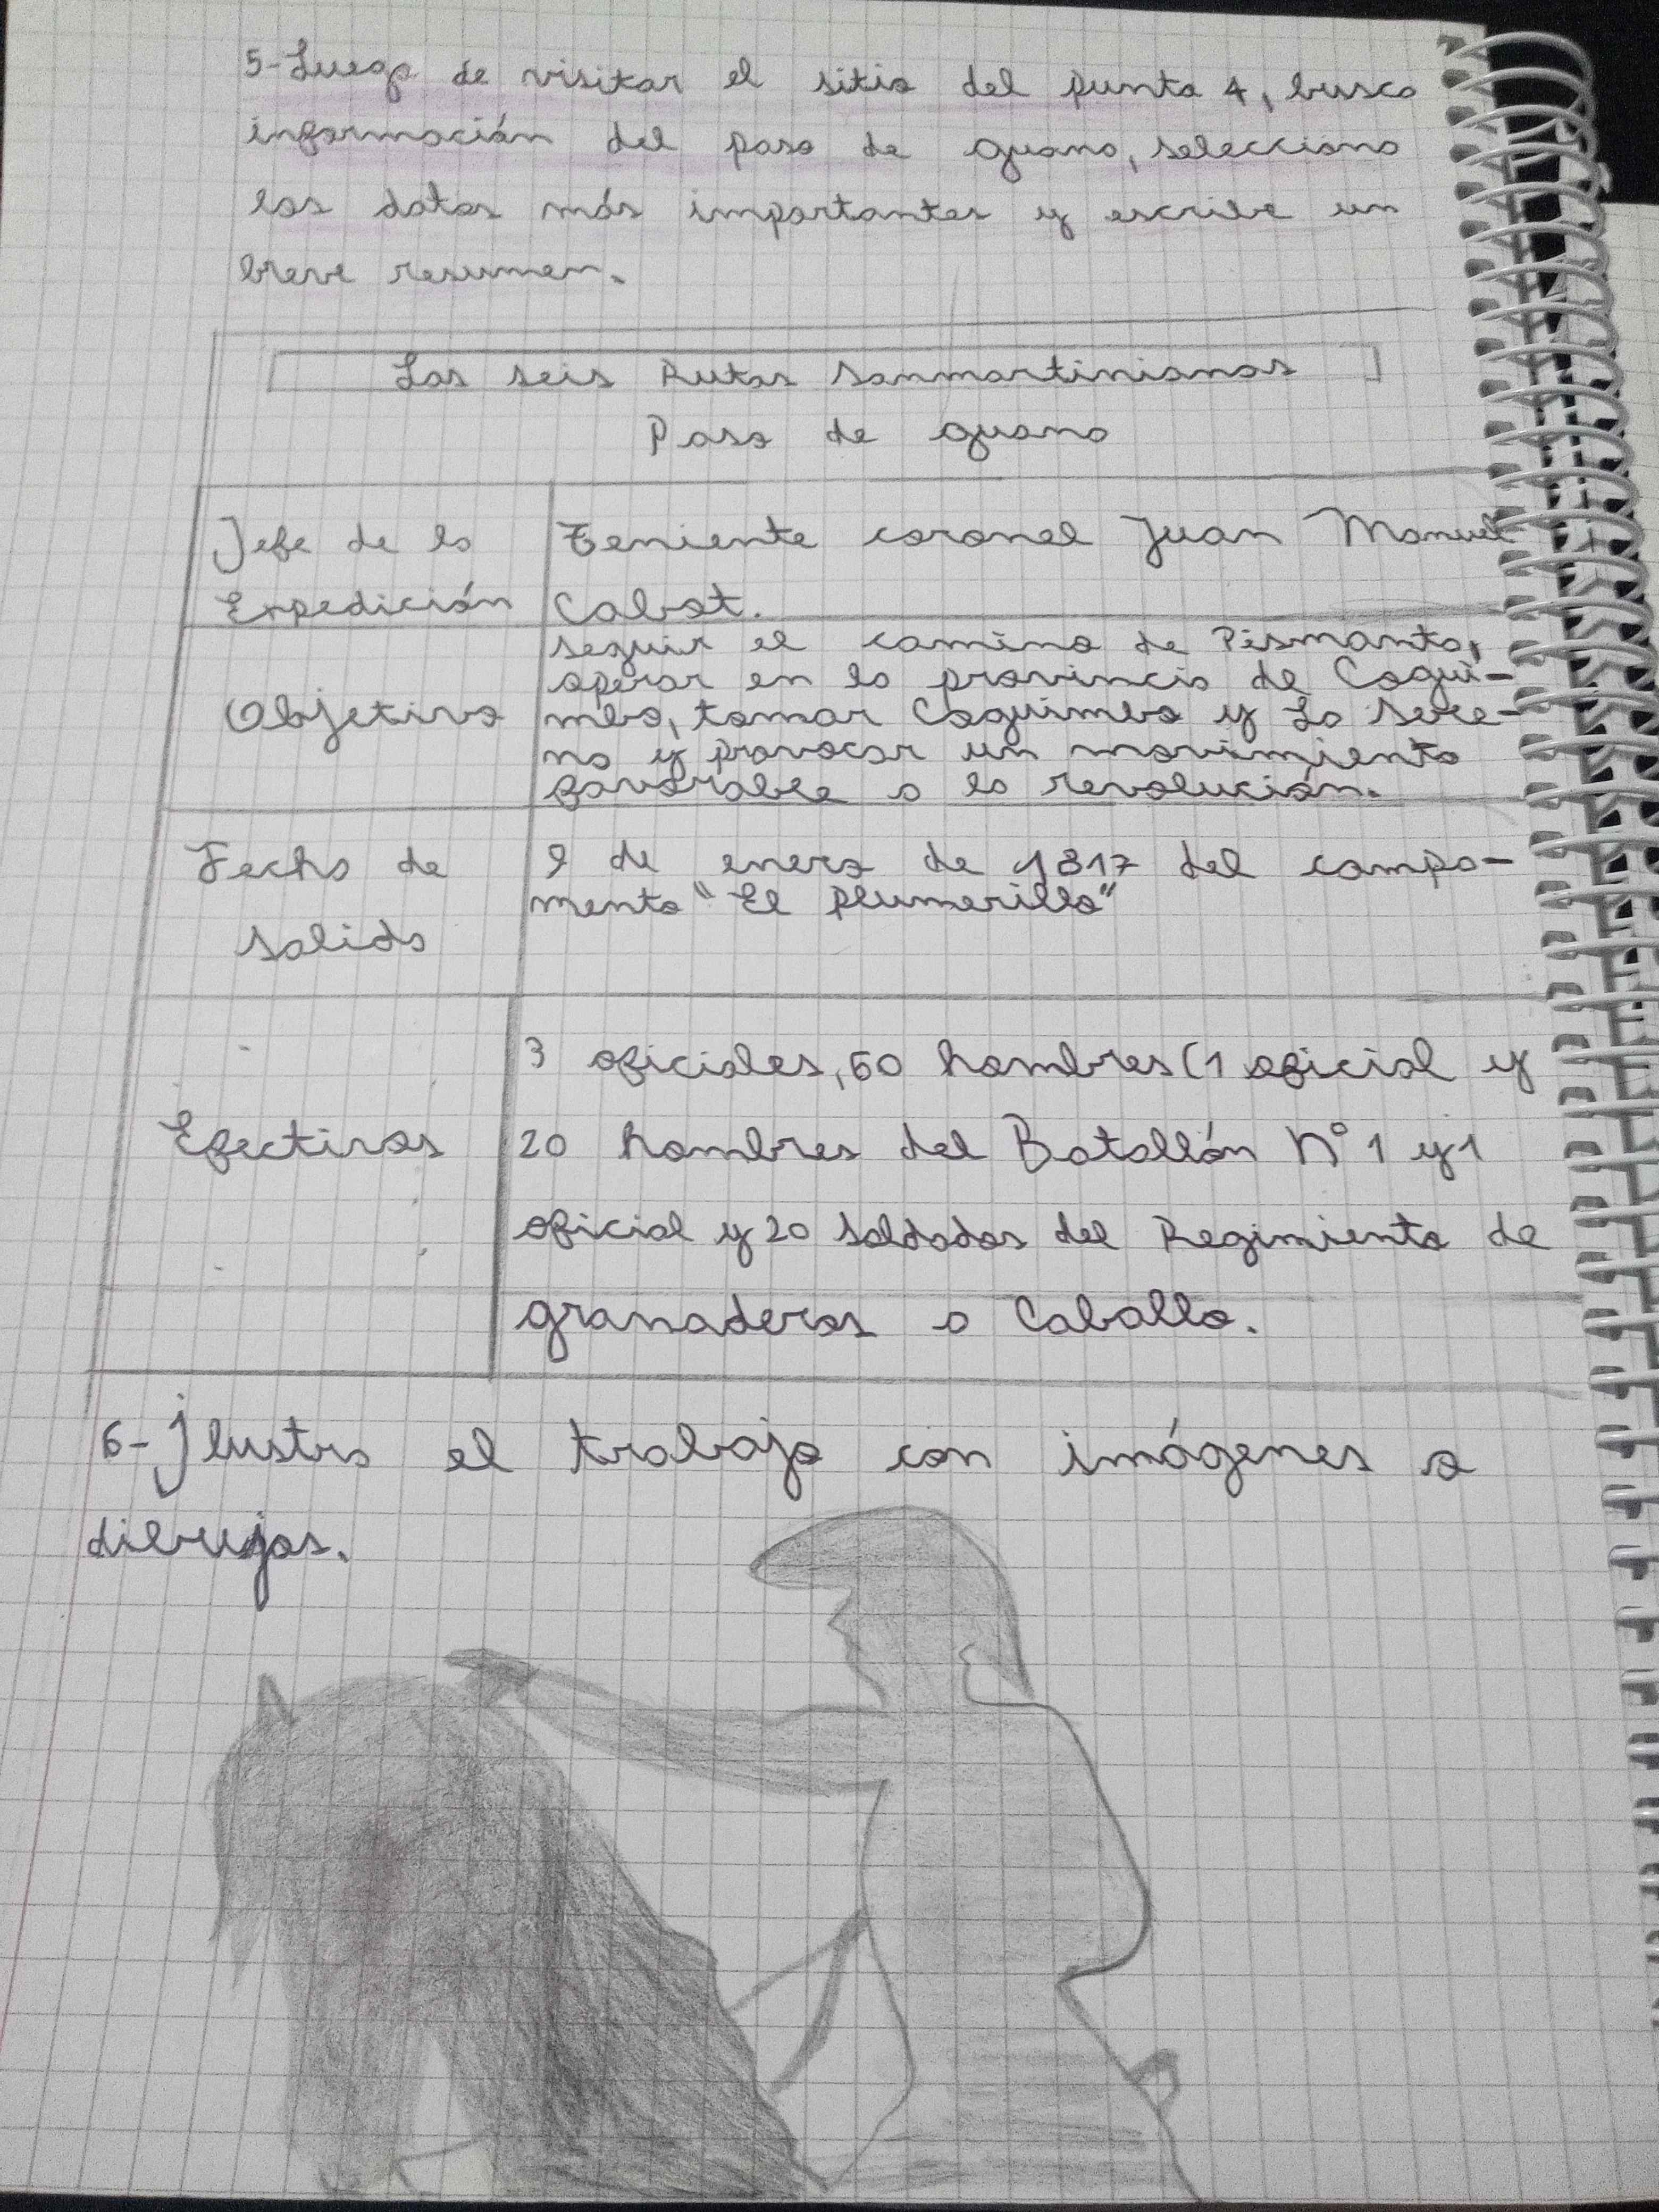 5-Luego de visitar el sitio del punto 4, busca
información del paso de guana, selecciona
los datos más importantes y escribe un
breve resumen.
Las seis Rutas Sanmartinianas
Paso de guana
Jefe de la
Expedición
Teniente coronel Juan Manuel
Cabot.
Objetivo
seguir el camino de Pismanta,
operar en la provincia de Coqui-
mbo, tomar Coquimbo y La Sere-
na y provocar un movimiento
favorable a la revolución.
Fecha de
salida
9 de enero de 1817 del campa-
mento "El plumerillo"
Efectivos
3 oficiales, 60 hombres (1 oficial y
20 hombres del Batallón N° 1 y 1
oficial y 20 soldados del Regimiento de
granaderos a Caballo.
6-Ilustra el trabajo con imágenes o
dibujos.